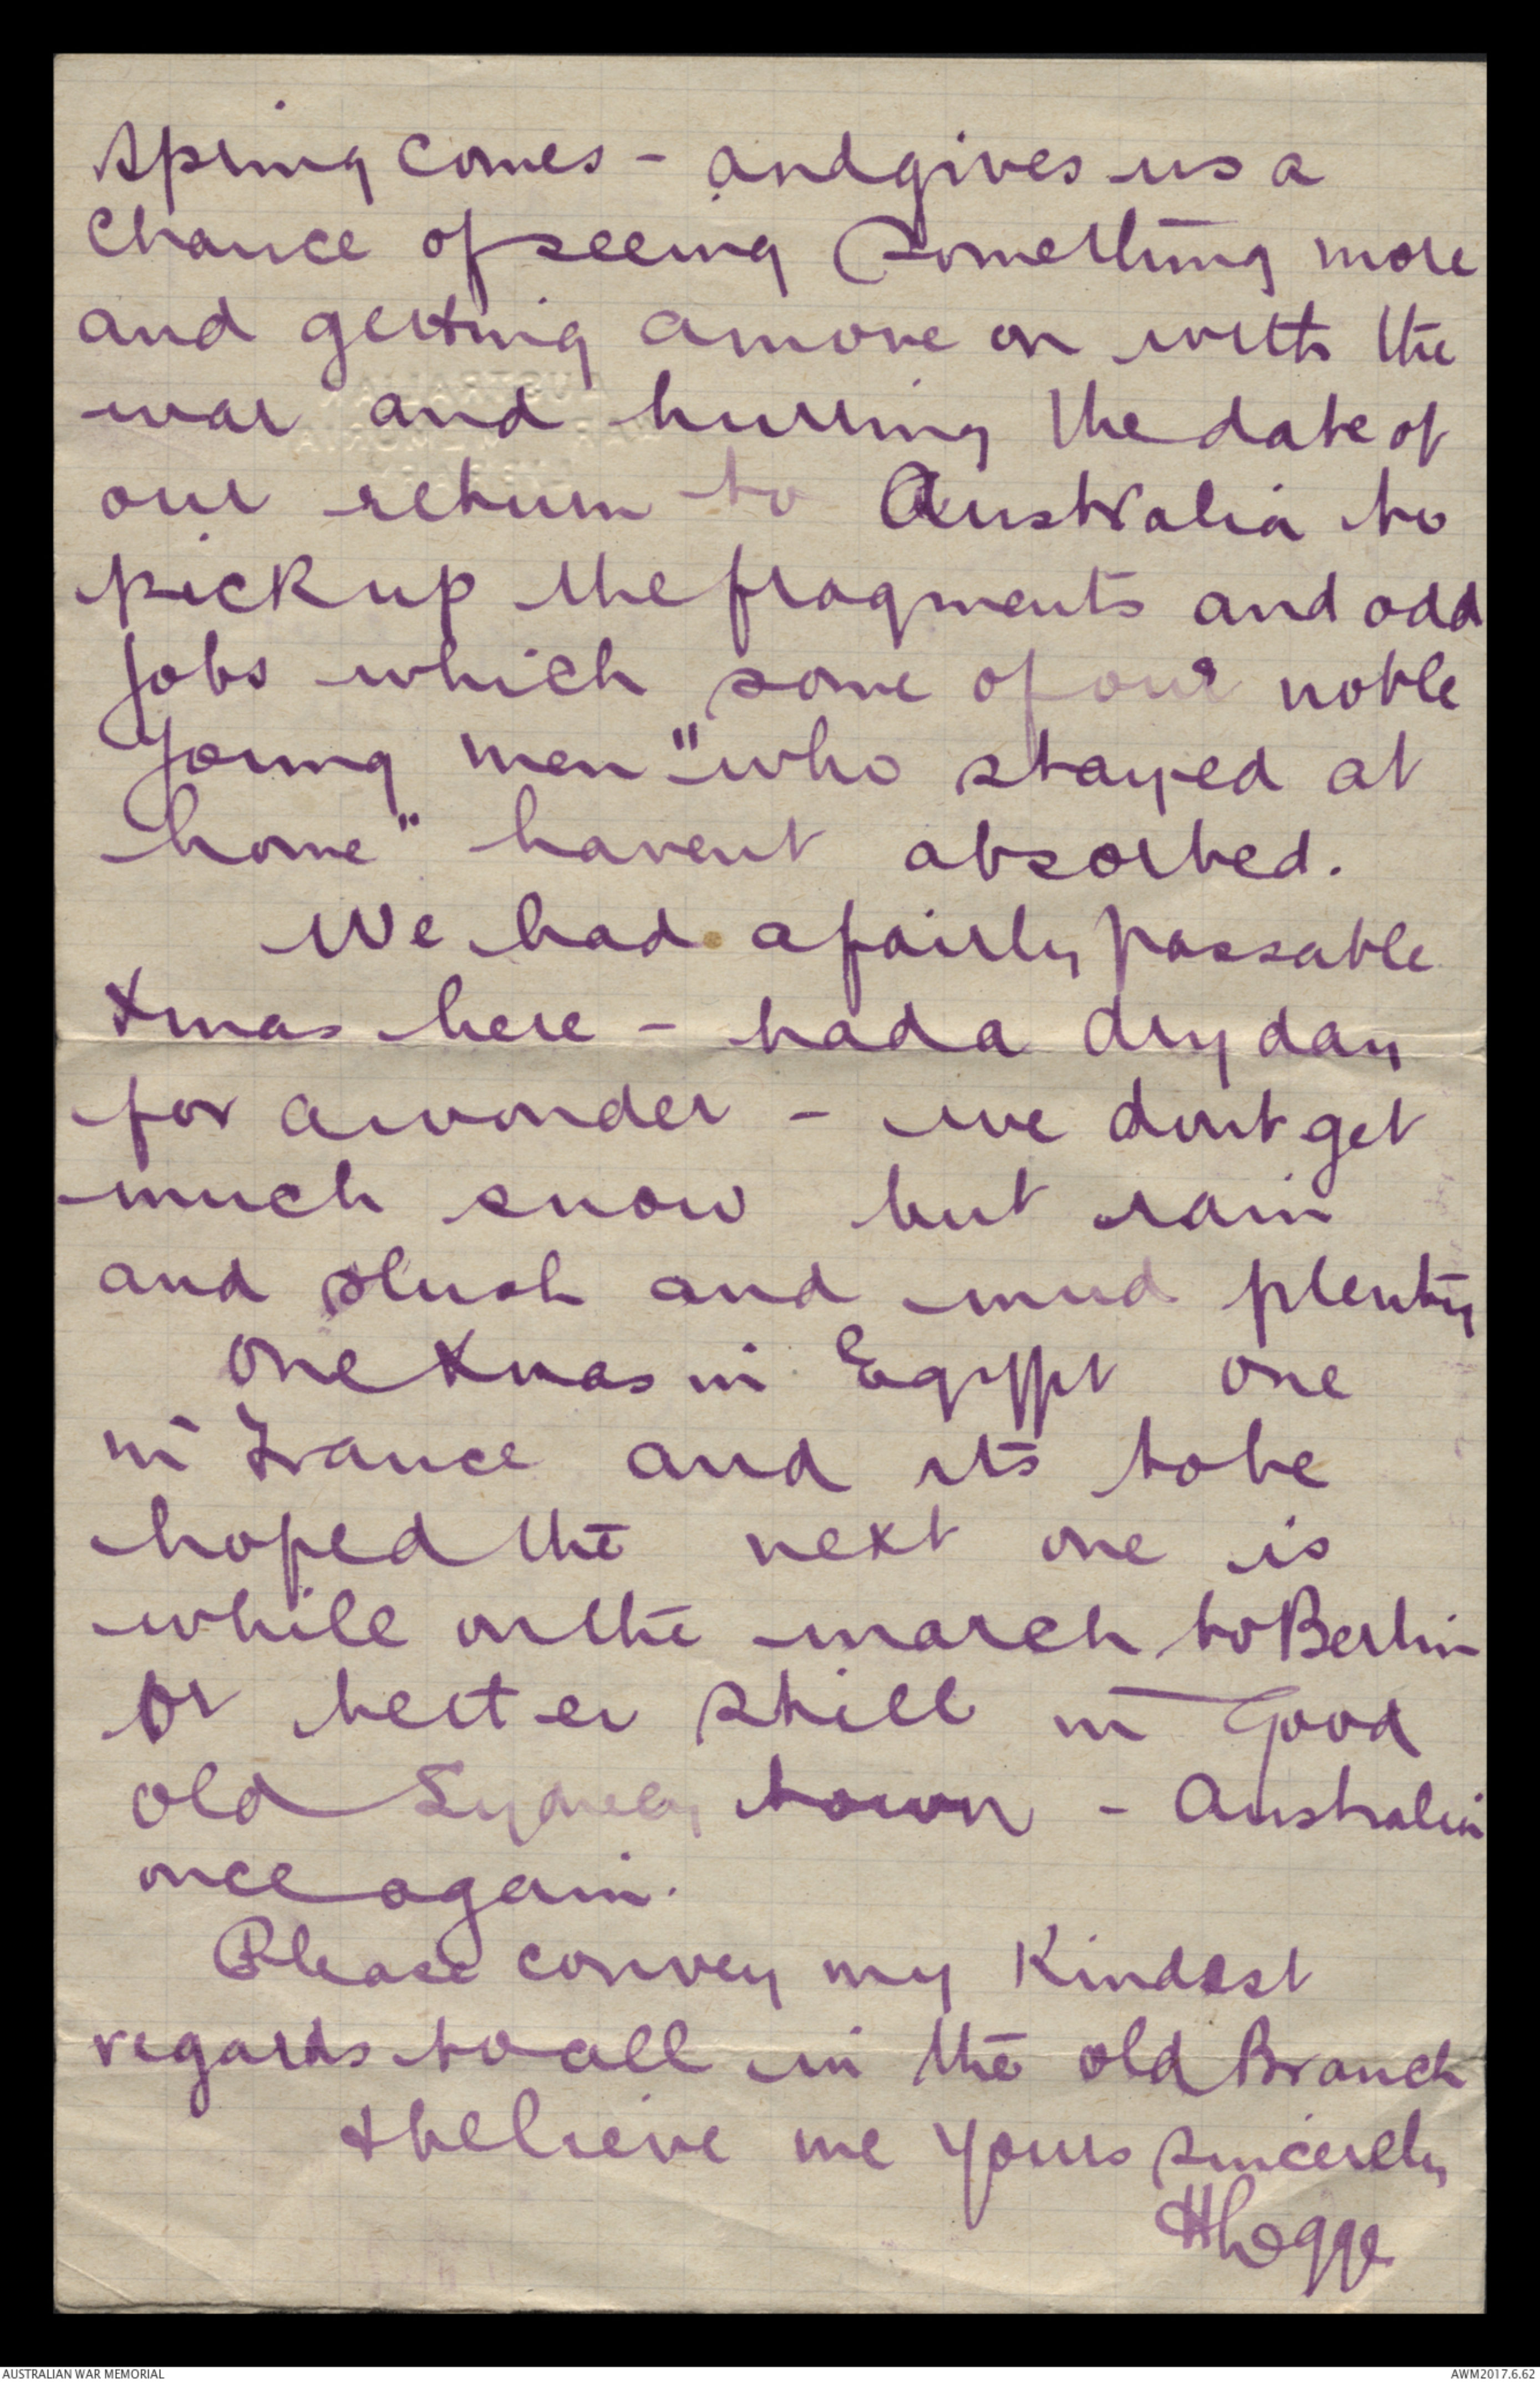 Spring comes - and gives us a
Chance of seeing Something more
and getting a move on with the
war and hurring the date of
our return to Australia to
pick up the fragments and odd
Jobs which some of our noble
Young men "who stayed at
home" havent absorbed.
We had a fairly passable
Xmas here - had a dry day
for a wonder - we dont get
much snow but rain
and slush and mud plenty
One Xmas in Egypt one
in France and its to be
hoped the next one is
while on the march to Berlin
or better still in Good
old Sydney town - Australia
once again.
Please convey my Kindest
regards to all in the old Branch
& believe me Yours sincerely
H Legge
AUSTRALIAN WAR MEMORIAL
AWM2017.6.62